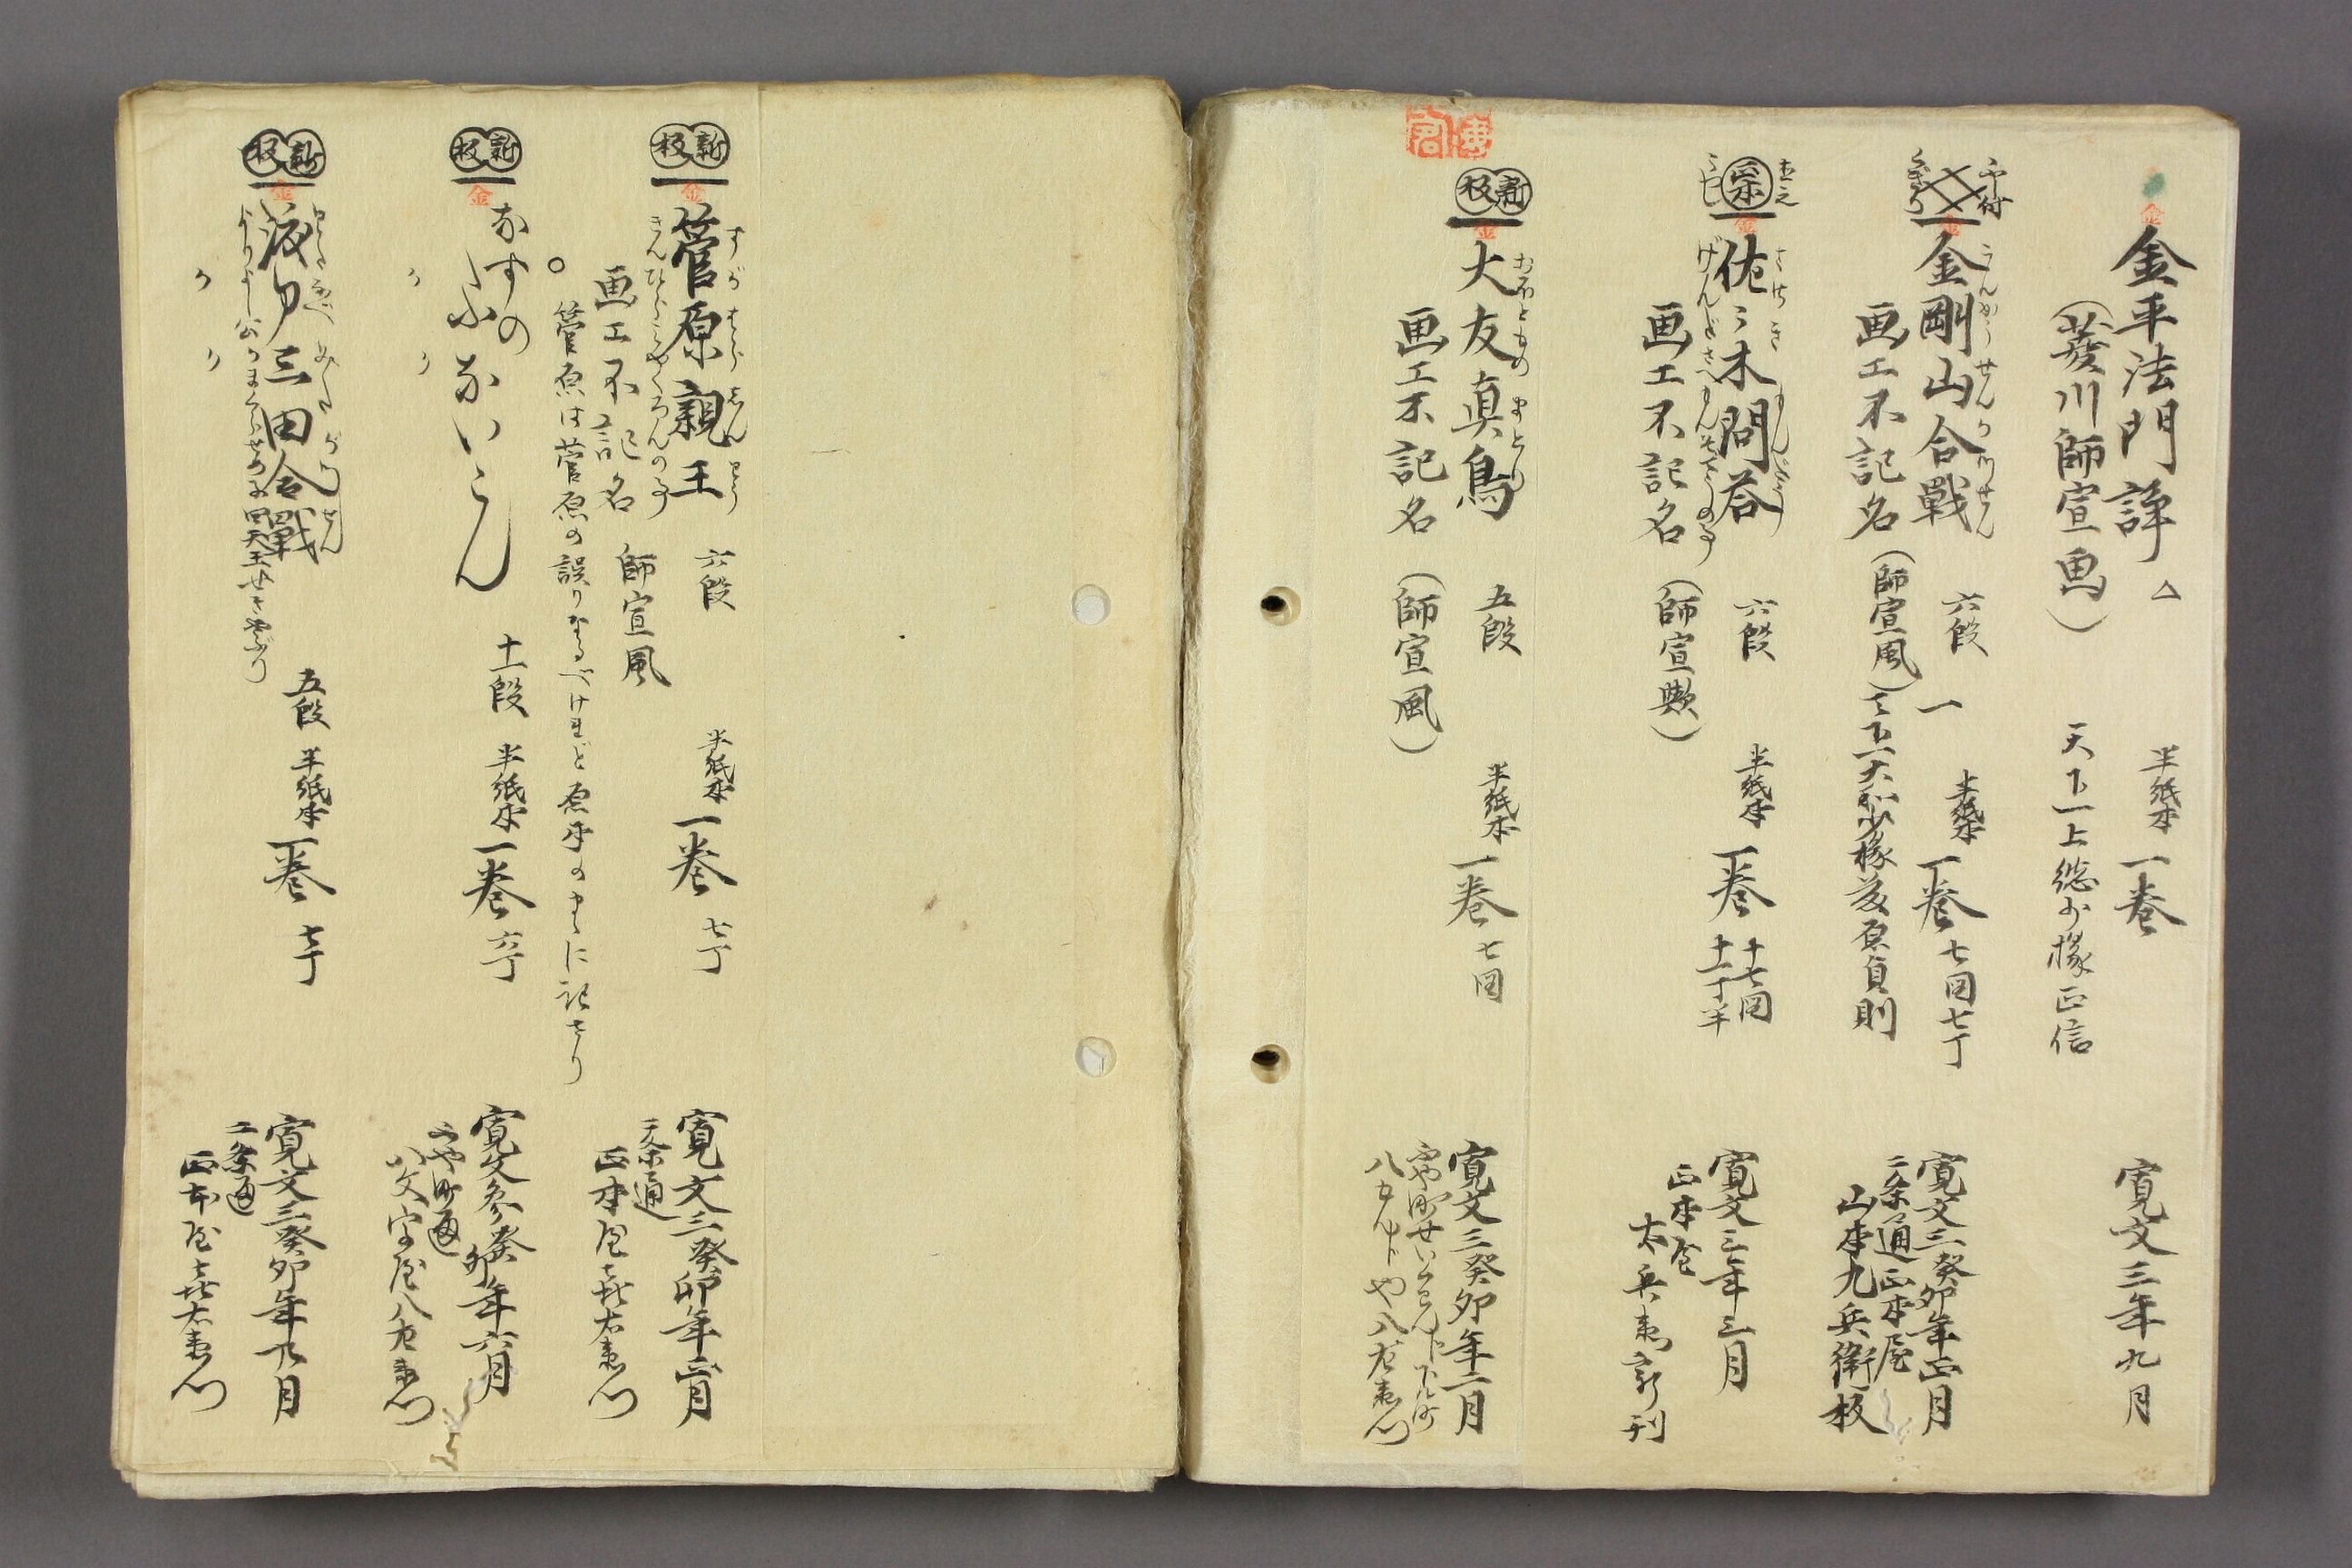 金
金平法門諍 △ 半紙本 一巻 寛文三年九月
(菱川師宣画) 天下一上総少掾正信
金剛山合戦 六段 一 半紙本 一巻 七図 七丁 寛文三癸卯年正月
こんがうせんかつせん
画工不記名 (師宣風) 天下一大和少掾藤原貞則 二条通正本屋
山本九兵衛板
佐々木問荅 六段 半紙本 一巻 十七図 寛文三年三月
さゝき もんだう
十一丁半
画工不記名 (師宣歟) 正本屋
太兵衛新刊
新板
大友真鳥 五段 半紙本 一巻 七図 寛文三癸卯年二月
おほともの まとり
画工不記名 (師宣風)
八もんじや八左衛門
新板
菅原親王 六段 半紙本 一巻 七丁 寛文三癸卯年正月
すがはらしんわう
二条通
画工不記名 師宣風 正本屋喜右衛門
○菅原は菅原の誤りなるべけれど原本のまゝに記せり
新板
なすの 十一段 半紙本 一巻 六丁 寛文参癸卯年六月
ふや町通
八文字屋八左衛門
新板
渡部三田合戦 五段 半紙本 一巻 七丁 寛文三癸卯年九月
よりよし公かまくらせめ并四天王せきやぶり
二条通
正本屋喜右衛門